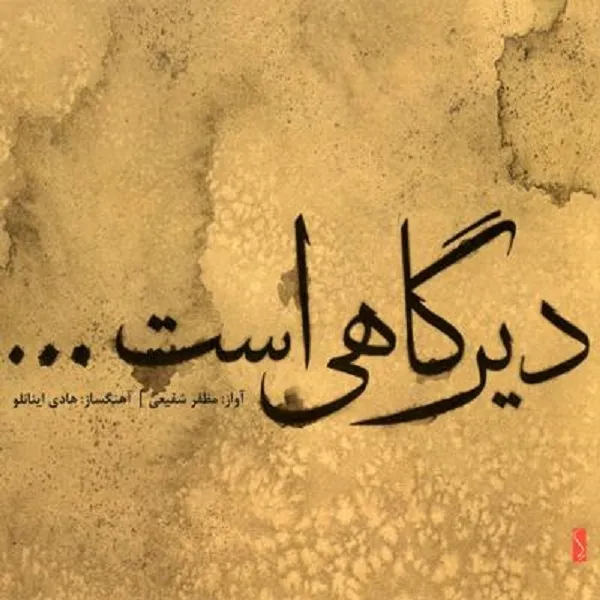 دیرگاهی است ...
آواز: مظفر شفیعی | آهنگساز: هادی اینانلو